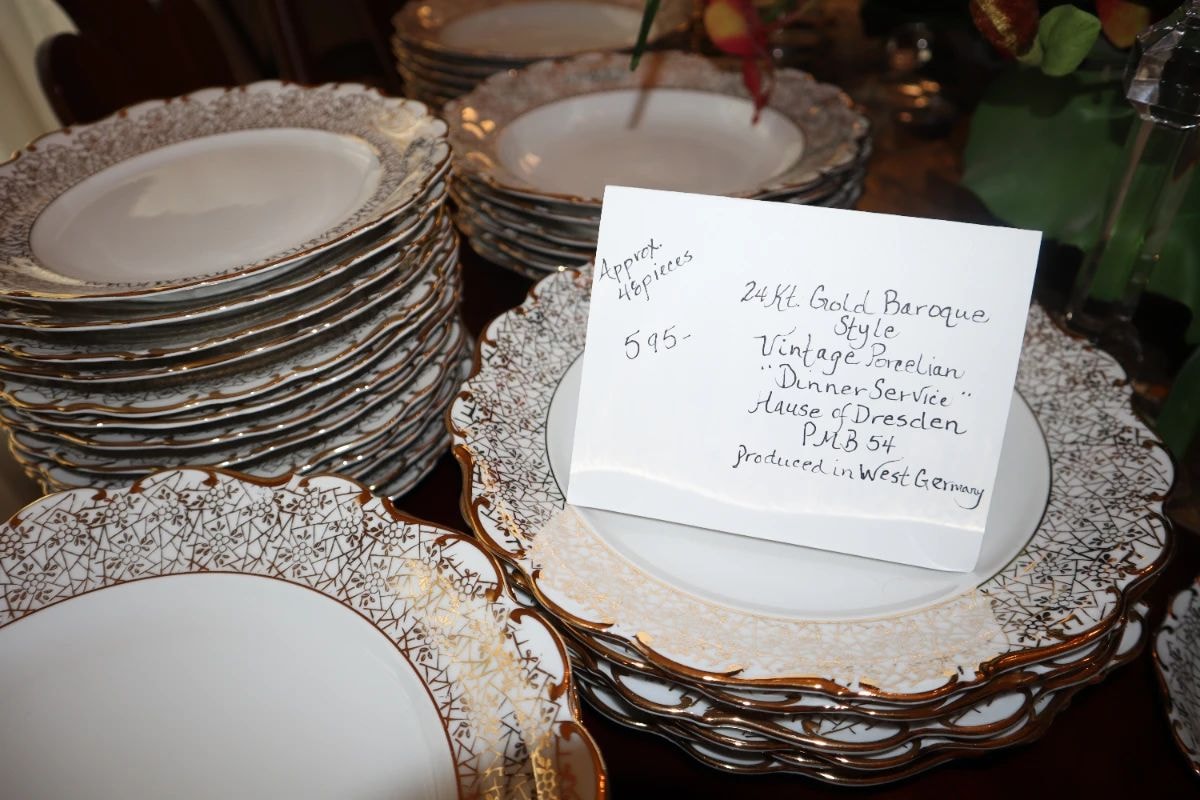 Approx.
48pieces
595-
24Kt. Gold Baroque
Style
Vintage Porcelian
"Dinner Service"
Hause of Dresden
PMB 54
produced in West Germany